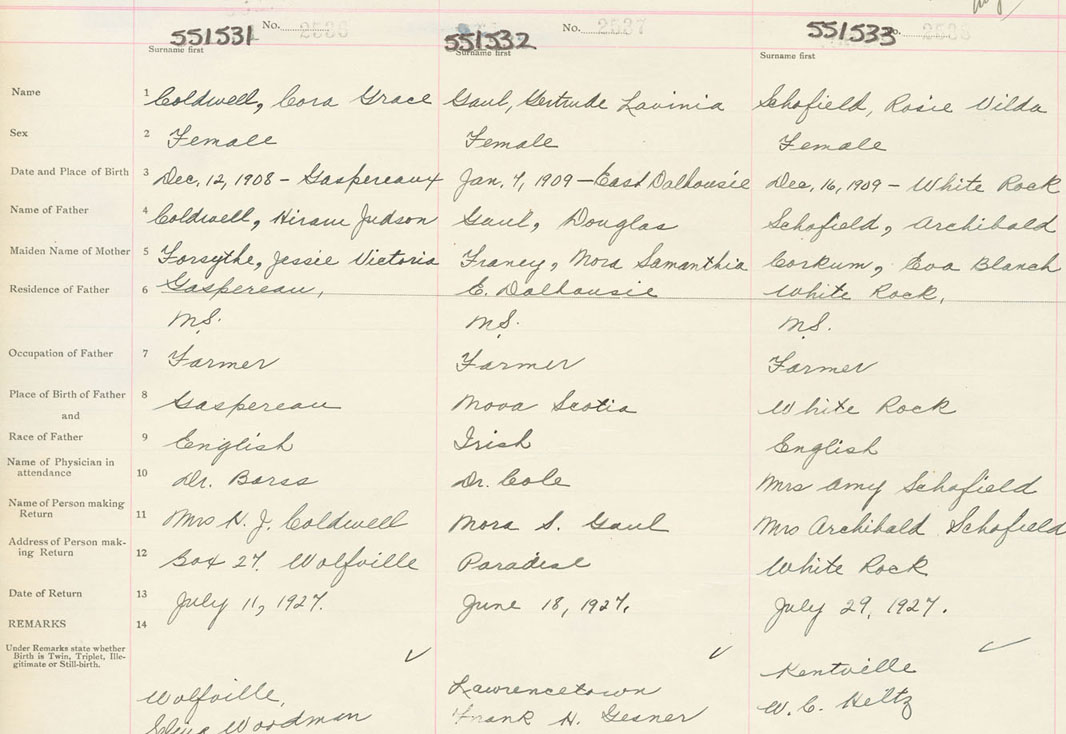 No. 2536 No. 2537 No. 2538
551531 551532 551533
Surname first Surname first Surname first
Name 1 Coldwell, Cora Grace Gaul, Gertrude Lavinia Schofield, Rosie Vilda
Sex 2 Female Female Female
Date and Place of Birth 3 Dec. 12, 1908 - Gaspereaux Jan. 7, 1909 - East Dalhousie Dec. 16, 1909 - White Rock
Name of Father 4 Coldwell, Hiram Judson Gaul, Douglas Schofield, Archibald
Maiden Name of Mother 5 Forsythe, Jessie Victoria Franey, Nora Samanthia Corkum, Eva Blanch
Residence of Father 6 Gaspereau, E. Dalhousie White Rock,
N.S. N.S. N.S.
Occupation of Father 7 Farmer Farmer Farmer
Place of Birth of Father 8 Gaspereau Nova Scotia White Rock
and
Race of Father 9 English Irish English
Name of Physician in
attendance 10 Dr. Barss Dr. Cole Mrs Amy Schofield
Name of Person making
Return 11 Mrs H. J. Coldwell Nora S. Gaul Mrs Archibald Schofield
Address of Person mak-
ing Return 12 Box 27. Wolfville Paradise White Rock
Date of Return 13 July 11, 1927. June 18, 1927. July 29, 1927.
REMARKS 14
Under Remarks state whether
Birth is Twin, Triplet, Ille-
gitimate or Still-birth.
Wolfville, Lawrencetown Kentville
Woodman Frank H. Gesner W. C. Hiltz